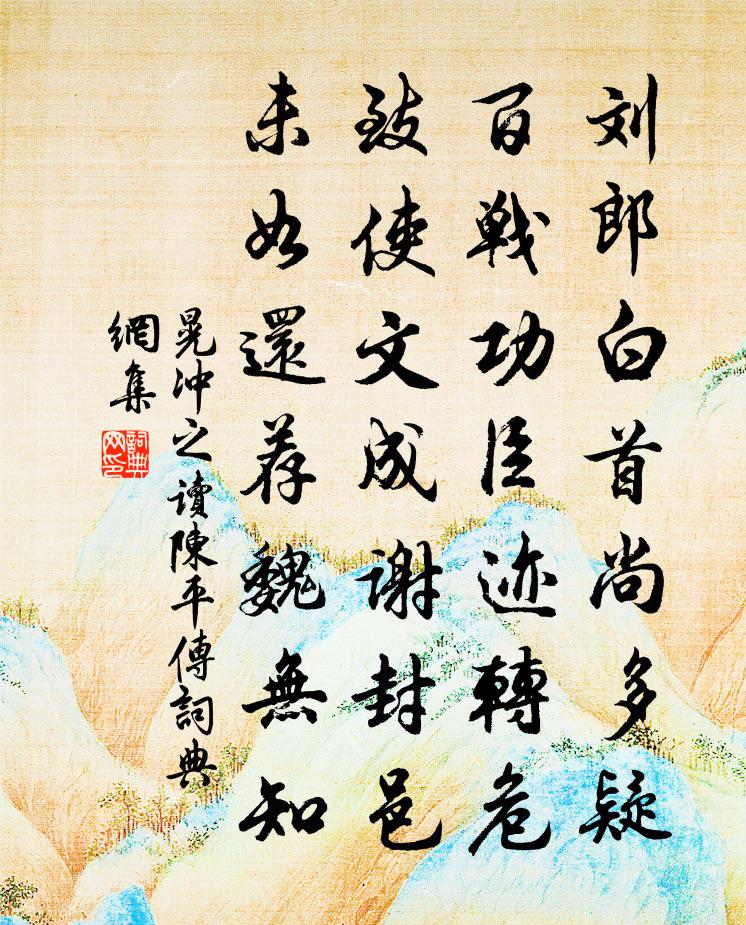 刘郎白首尚多疑
百戦功臣迹轉危
致使文成谢封邑
未如還荐魏無知
晁冲之讀陳平傳詞典
網集
詞典
网印